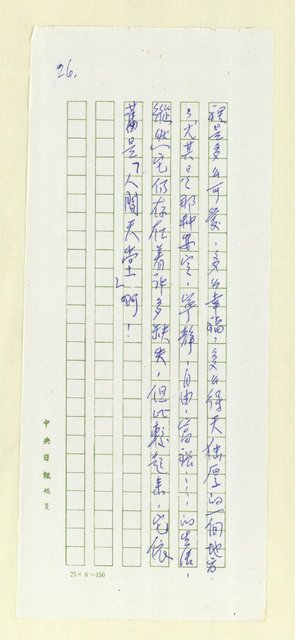 26.
裡是多么可愛，多么幸福，多么得天独厚的一個地方
，尤其是那种安定，寧靜，自由，富裕，……的生活，
縱然它仍存在着許多缺失，但比較起來，它依
舊是「人間天堂」啊！
中央日報稿箋
25×6=150